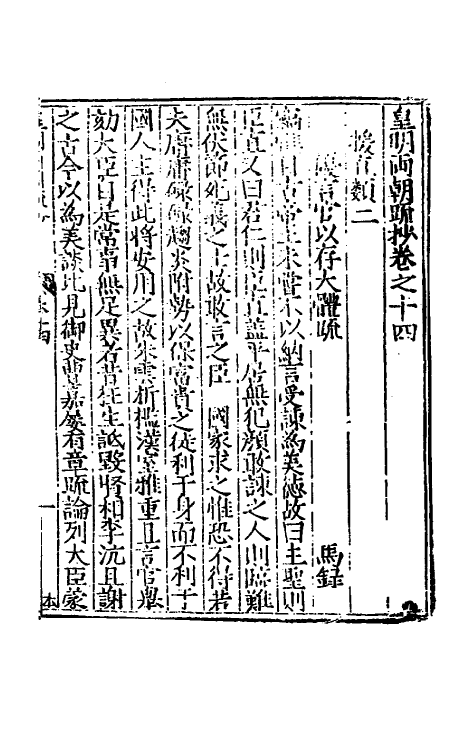 皇明兩朝疏抄卷之十四
援直類二
言官以存大體疏
馬錄
自古帝王未嘗不以納言受諫為美德故曰主聖則
臣直又曰君仁則臣直蓋平居無犯顏敢諫之人則臨難
無伏節死義之士故敢言之臣 國家求之惟恐不得若
夫庸庸碌碌趨炎附勢以保富貴之徒利于身而不利于
國人主得此將安用之故朱雲折檻漢室推重且言官舉
劾大臣自是常事無足異者昔狂生詆毀賢相李沆且謝
之古今以為美談比見御史曹嘉屢有章疏論列大臣蒙
一